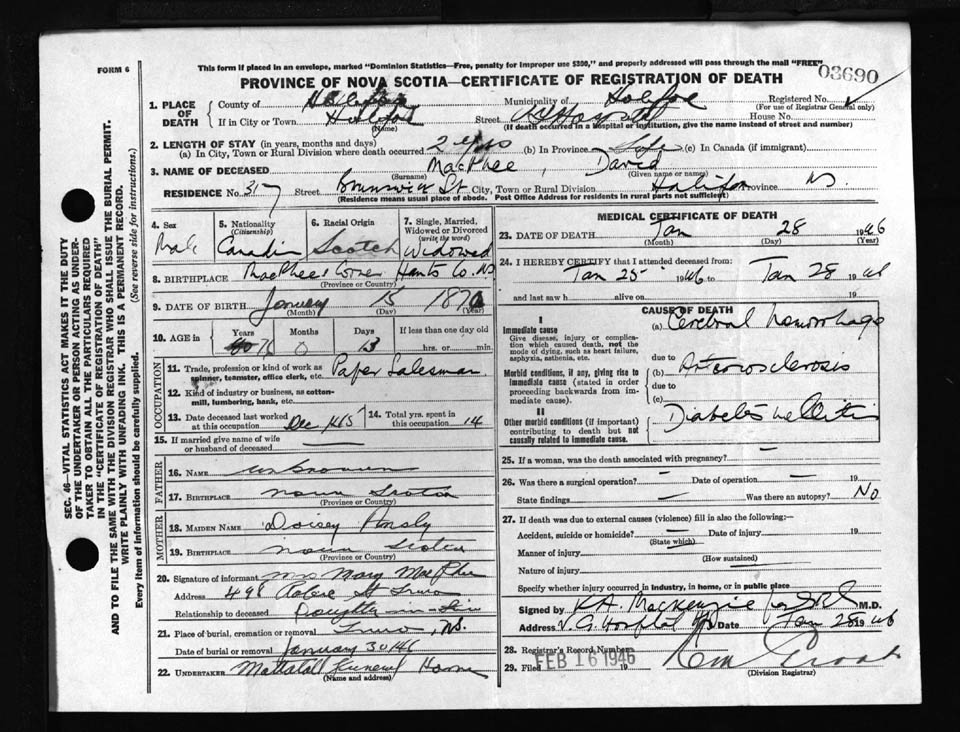 This form if placed in an envelope, marked "Dominion Statistics—Free, penalty for improper use $300," and properly addressed will pass through the mail "FREE"
FORM 6
PROVINCE OF NOVA SCOTIA—CERTIFICATE OF REGISTRATION OF DEATH
03690
1. PLACE OF DEATH
County of Halifax Municipality of Halifax Registered No.
(For use of Registrar General only)
If in City or Town Halifax Street V G Hospital House No.
(Name) (If death occurred in a hospital or institution, give the name instead of street and number)
2. LENGTH OF STAY (in years, months and days)
(a) In City, Town or Rural Division where death occurred 2 yrs (b) In Province Life (c) In Canada (if immigrant)
3. NAME OF DECEASED MacPhee, David
(Surname) (Given name or names)
RESIDENCE No. 317 Street Brunswick St City, Town or Rural Division Halifax Province NS.
(Residence means usual place of abode. Post Office Address for residents in rural parts not sufficient)
4. Sex Male
5. Nationality (Citizenship) Canadin
6. Racial Origin Scotch
7. Single, Married, Widowed or Divorced (write the word) Widowed
8. BIRTHPLACE MacPhees Corner Hants Co. NS
(Province or Country)
9. DATE OF BIRTH January 15 1870
(Month) (Day) (Year)
10. AGE in Years 76 Months 0 Days 13 If less than one day old hrs. or min.
OCCUPATION
11. Trade, profession or kind of work as spinner, teamster, office clerk, etc. Paper Salesman
12. Kind of industry or business, as cotton-mill, lumbering, bank, etc.
13. Date deceased last worked at this occupation Dec 1945
14. Total yrs. spent in this occupation 14
15. If married give name of wife or husband of deceased
FATHER
16. NAME unknown
17. BIRTHPLACE Nova Scotia
(Province or Country)
MOTHER
18. MAIDEN NAME Doisey
19. BIRTHPLACE Nova Scotia
(Province or Country)
20. Signature of informant Mrs Mary MacPhee
Address 498 Robie St Truro
Relationship to deceased Daughter-in-law
21. Place of burial, cremation or removal Truro, NS.
Date of burial or removal January 30/46
22. UNDERTAKER Mattatall Funeral Home
(Name and address)
MEDICAL CERTIFICATE OF DEATH
23. DATE OF DEATH Jan 28 1946
(Month) (Day) (Year)
24. I HEREBY CERTIFY that I attended deceased from:
Jan 25 1946 to Jan 28 1946
and last saw h alive on 19
CAUSE OF DEATH
I
Immediate cause
Give disease, injury or complication which caused death, not the mode of dying, such as heart failure, asphyxia, asthenia, etc.
(a) Cerebral hemorrhage
due to
Morbid conditions, if any, giving rise to immediate cause (stated in order proceeding backwards from immediate cause).
(b) Arteriosclerosis
due to
(c)
II
Other morbid conditions (if important) contributing to death but not causally related to immediate cause.
Diabetes mellitis
25. If a woman, was the death associated with pregnancy? —
26. Was there a surgical operation? — Date of operation — 19
State findings — Was there an autopsy? No
27. If death was due to external causes (violence) fill in also the following:—
Accident, suicide or homicide? — Date of injury 19
(State which)
Manner of injury
(How sustained)
Nature of injury
Specify whether injury occurred in industry, in home, or in public place
Signed by K.A. MacKenzie M.D.
Address V.G. Hospital Date Jan 28 1946
28. Registrar's Record Number
29. Filed FEB 16 1946
(Division Registrar)
SEC. 46—VITAL STATISTICS ACT MAKES IT THE DUTY
OF THE UNDERTAKER OR PERSON ACTING AS UNDER-
TAKER TO OBTAIN ALL THE PARTICULARS REQUIRED
IN THE "CERTIFICATE OF REGISTRATION OF DEATH"
AND TO FILE THE SAME WITH THE DIVISION REGISTRAR WHO SHALL ISSUE THE BURIAL PERMIT.
WRITE PLAINLY WITH UNFADING INK. THIS IS A PERMANENT RECORD.
Every item of information should be carefully supplied. (See reverse side for instructions.)